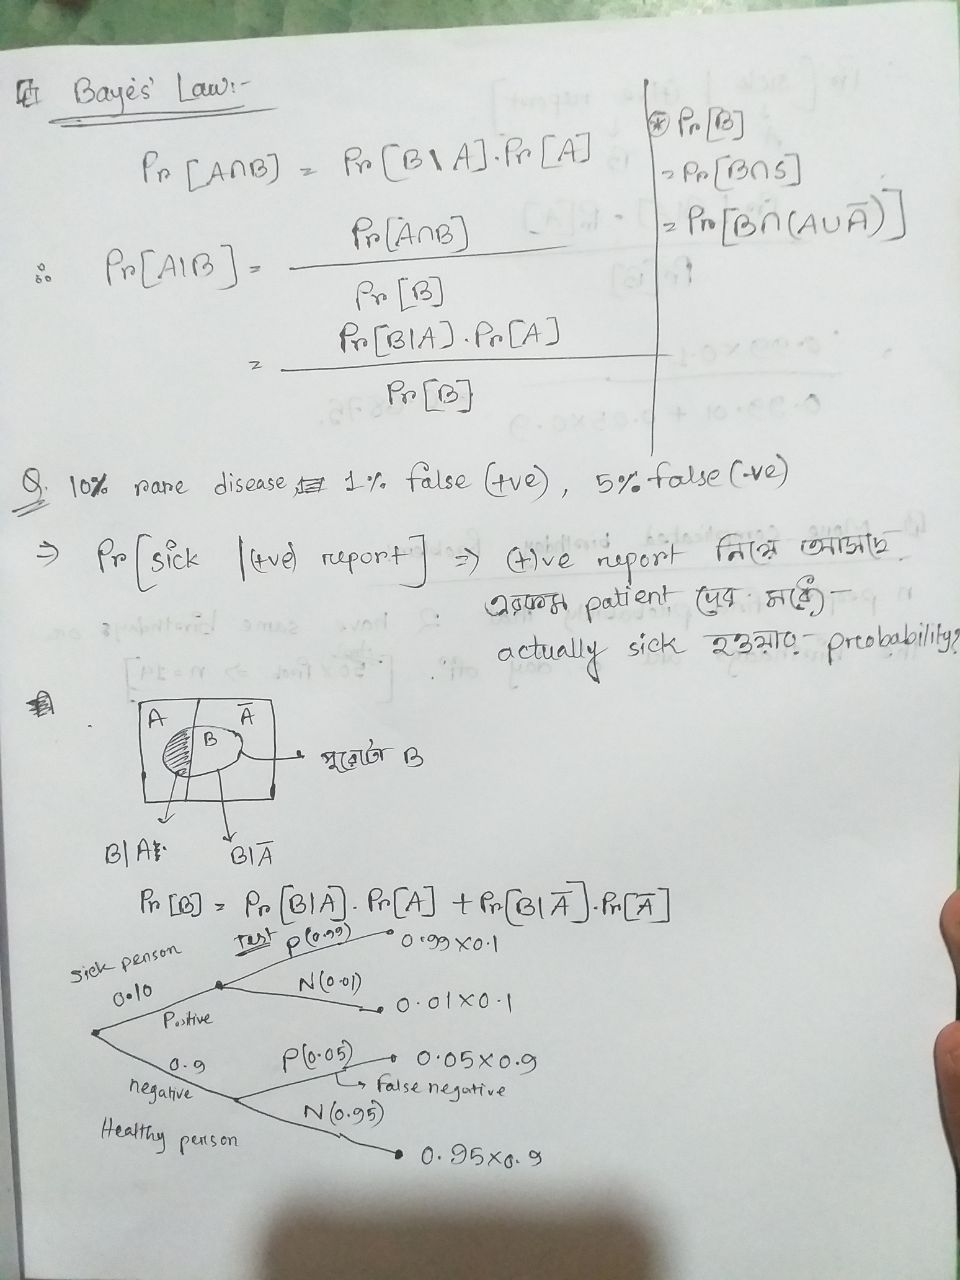 Bayes' Law:-
Pr[A∩B] = Pr[B\A].Pr[A]
∴ Pr[A|B] = Pr[A∩B] / Pr[B]
= Pr[B|A].Pr[A] / Pr[B]
⊛ Pr[B]
= Pr[B∩S]
= Pr[B∩(A∪Ā)]
Q. 10% rare disease, 1% false (+ve), 5% false (-ve)
⇒ Pr[sick |(+ve) report] ⇒ (+)ve report নিয়ে আসছে
এরকম patient দের মধ্যে
actually sick হওয়ার probability?
A Ā
B
পুরোটা B
B|A B|Ā
Pr[B] = Pr[B|A].Pr[A] + Pr[B|Ā].Pr[Ā]
sick person
0.10
Positive
Test
P(0.99) 0.99×0.1
N(0.01) 0.01×0.1
0.9
negative
Healthy person
P(0.05) 0.05×0.9
False negative
N(0.95) 0.95×0.9